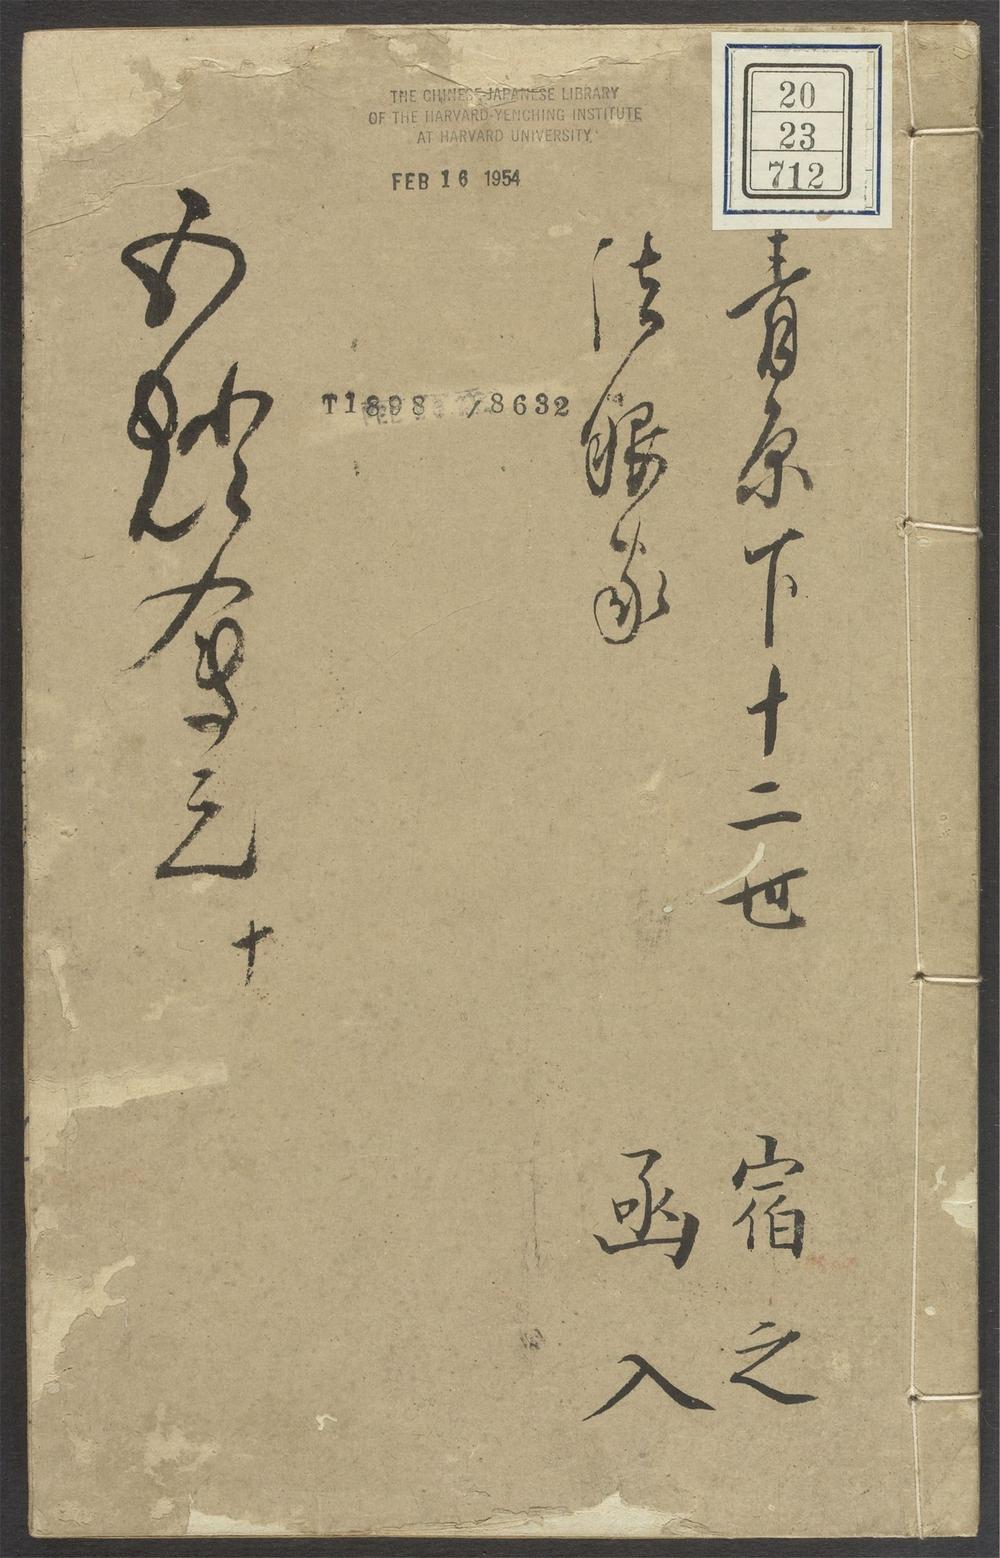 THE CHINESE-JAPANESE LIBRARY
OF THE HARVARD-YENCHING INSTITUTE
AT HARVARD UNIVERSITY
FEB 16 1954
20
23
712
青原下十二世 宿之
法眼 函入
T1898 /8632
五燈會元 十